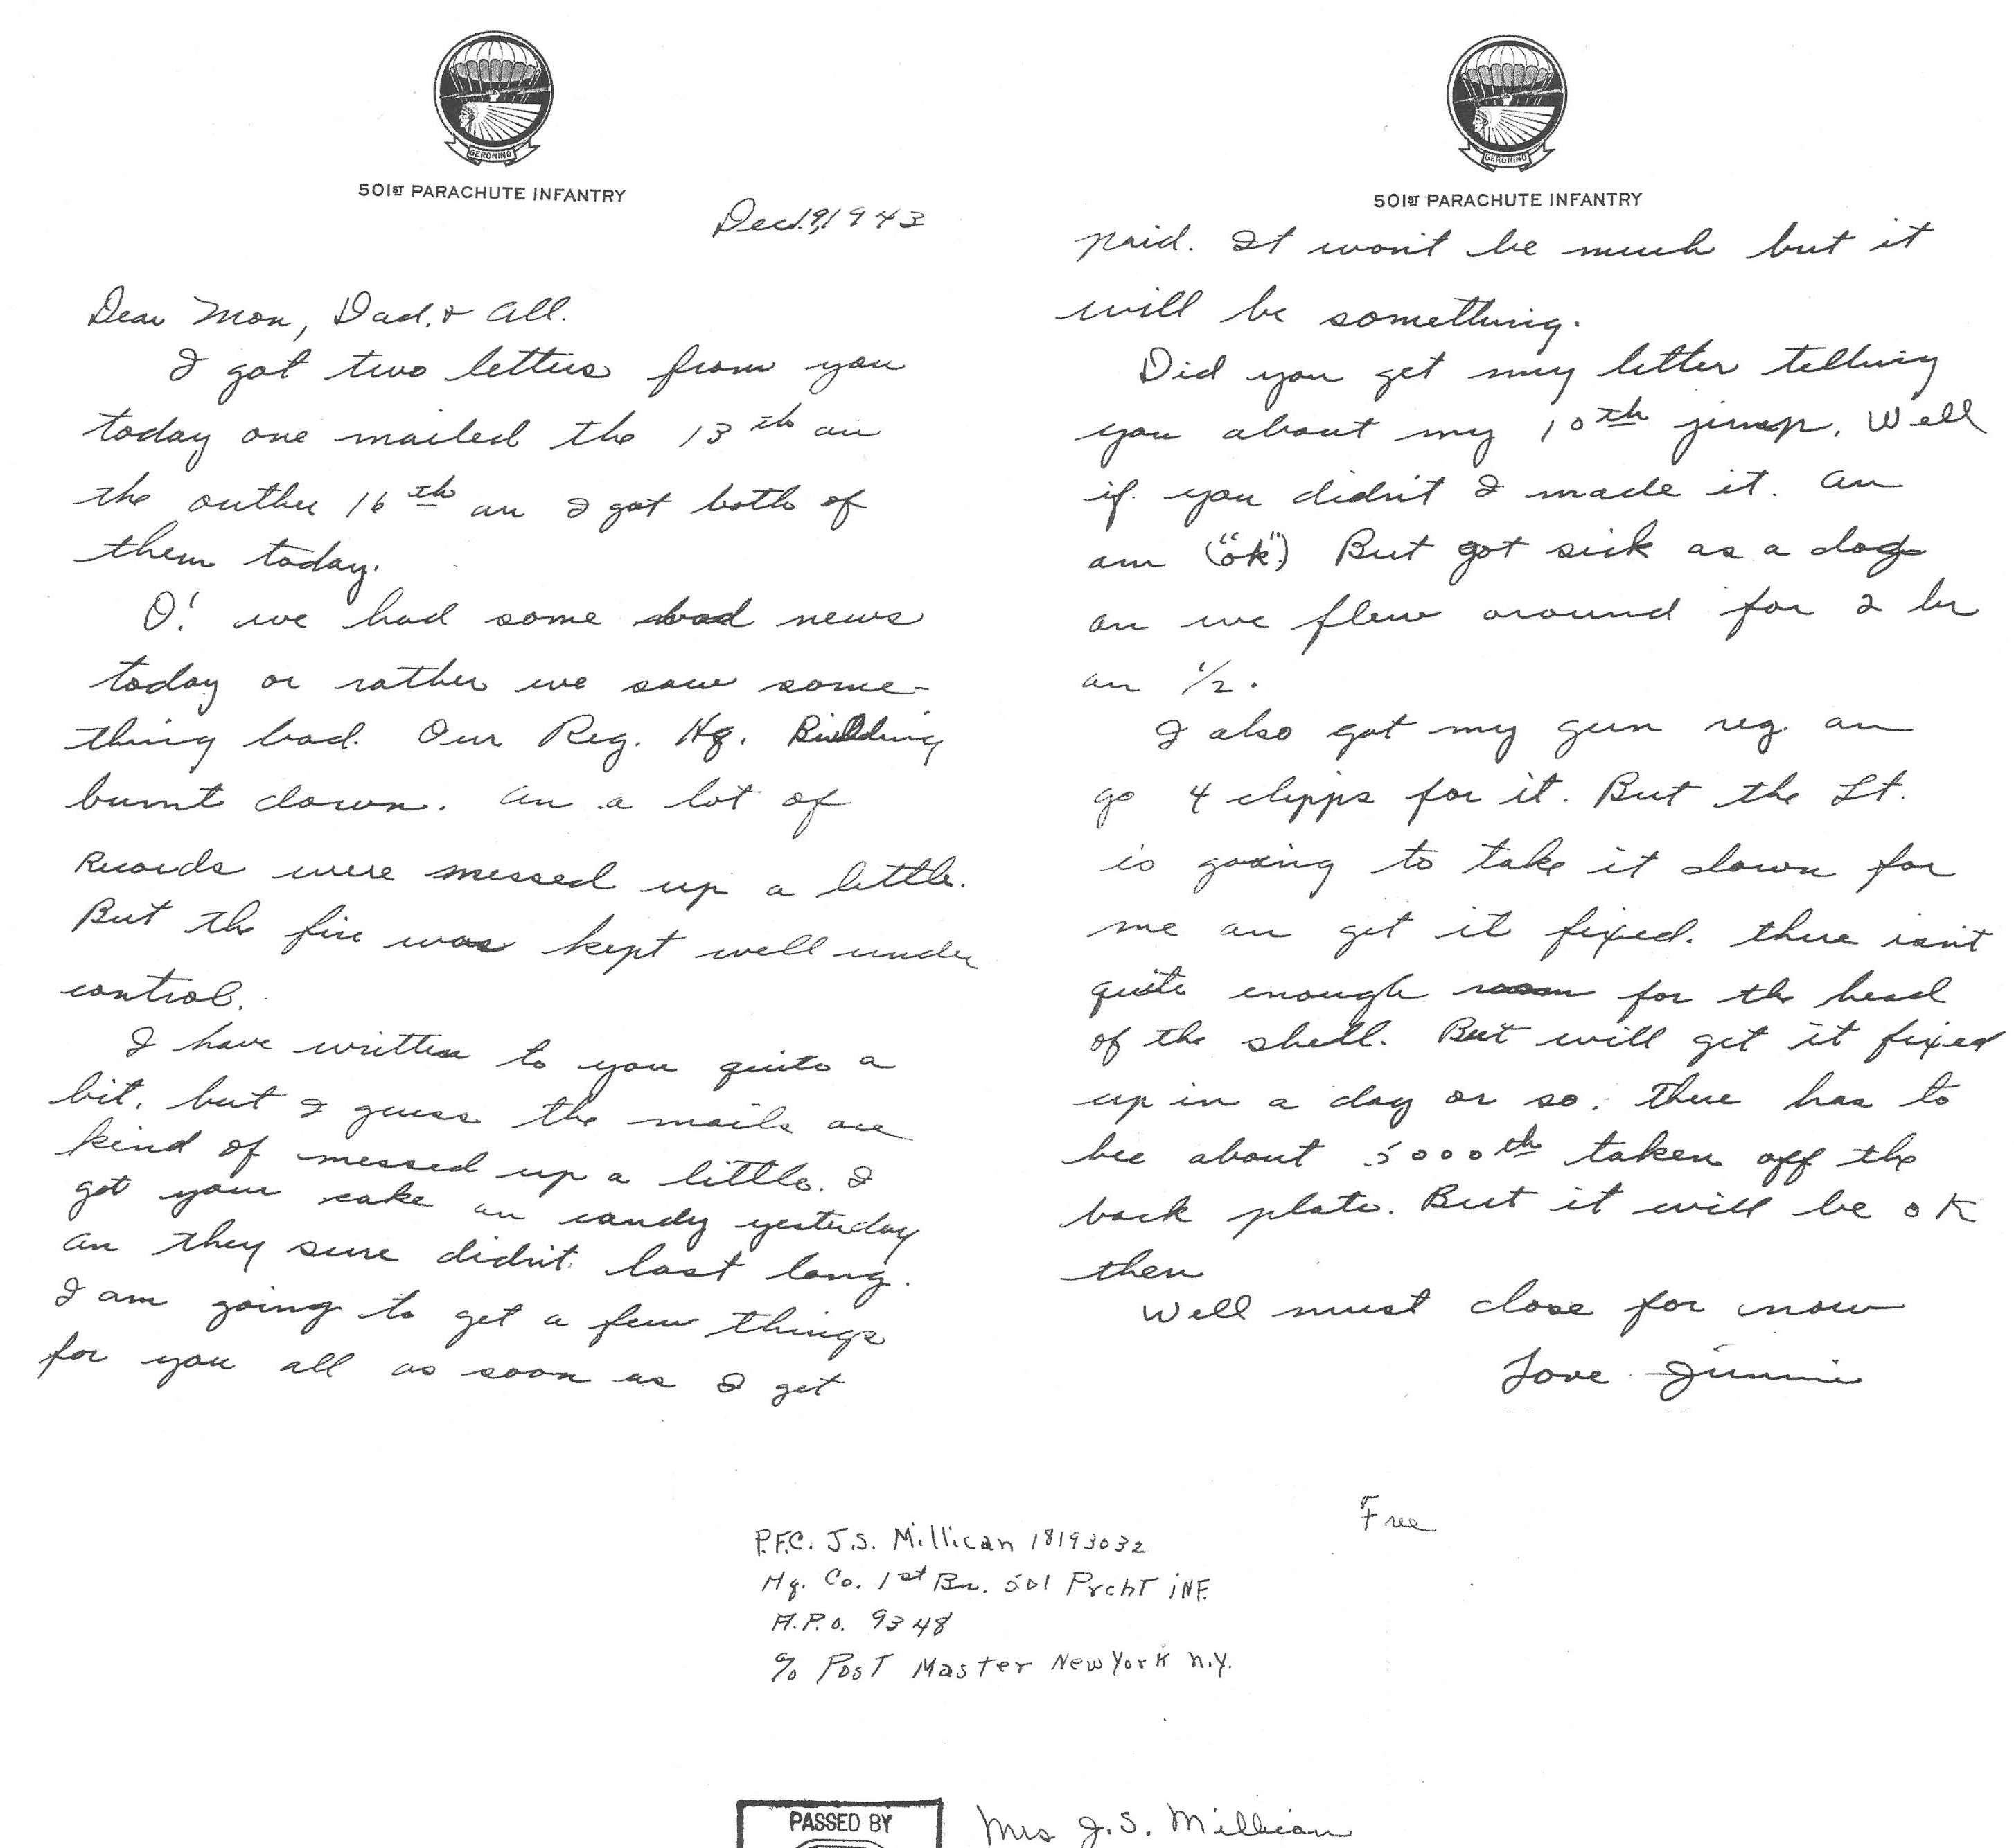 GERONIMO
501ST PARACHUTE INFANTRY
Dec. 19, 1943
Dear Mom, Dad, & All.
I got two letters from you
today one mailed the 13th an
the outher 16th an I got both of
them today.
O! we had some bad news
today or rather we saw some-
thing bad. Our Reg. Hq. Building
burnt down. An a lot of
Records were messed up a little.
But the fire was kept well under
control.
I have written to you quite a
bit, but I guess the mails are
kind of messed up a little. I
got your cake an candy yesterday
an they sure didn't last long.
I am going to get a few things
for you all as soon as I get
GERONIMO
501ST PARACHUTE INFANTRY
paid. It won't be much but it
will be something.
Did you get my letter telling
you about my 10th jump. Well
if you didn't I made it. An
am ("ok") But got sick as a dog
an we flew around for 2 hr
an 1/2.
I also got my gun reg. an
go 4 clipps for it. But the Lt.
is going to take it down for
me an get it fixed. there isn't
quite enough room for the head
of the shell. But will get it fixed
up in a day or so. There has to
bee about 5000th taken off the
back plate. But it will be OK
then
Well must close for now
Love Jimmie
Free
P.F.C. J.S. Millican 18193032
Hq. Co. 1st Bn. 501 Prcht iNF.
A.P.O. 9348
c/o Post Master New York N.Y.
PASSED BY
Mrs J.S. Millican